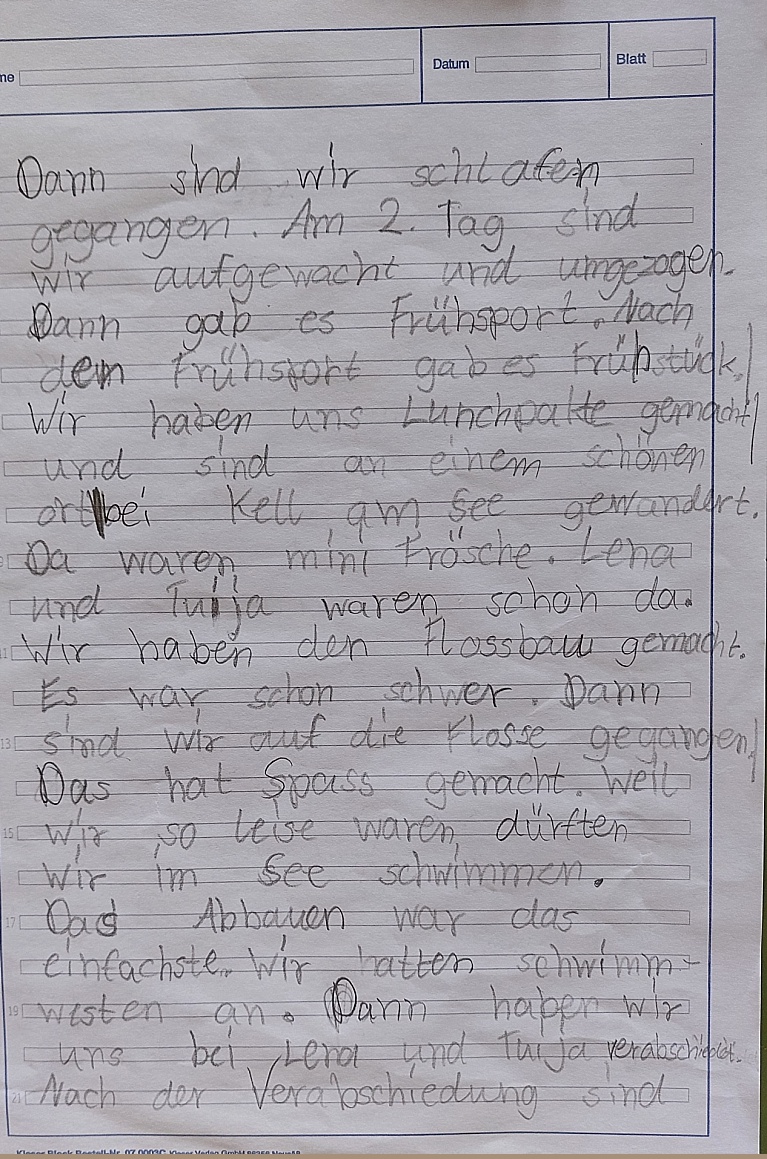 Datum
Blatt
Dann sind wir schlafen
gegangen. Am 2. Tag sind
wir aufgewacht und umgezogen.
Dann gab es Frühsport. Nach
dem Frühsport gab es Frühstück.
Wir haben uns Lunchpakte gemacht
und sind an einem schönen
ort bei Kell am See gewandert.
Da waren mini frösche. Lena
und Tuija waren schon da.
Wir haben den flossbau gemacht.
Es war schon schwer. Dann
sind wir auf die Flosse gegangen
Das hat Spass gemacht. Weil
wir so leise waren, dürften
wir im See schwimmen.
Das Abbauen war das
einfachste. Wir hatten schwimm-
westen an. Dann haben wir
uns bei Lena und Tuija verabschiedet.
Nach der Verabschiedung sind